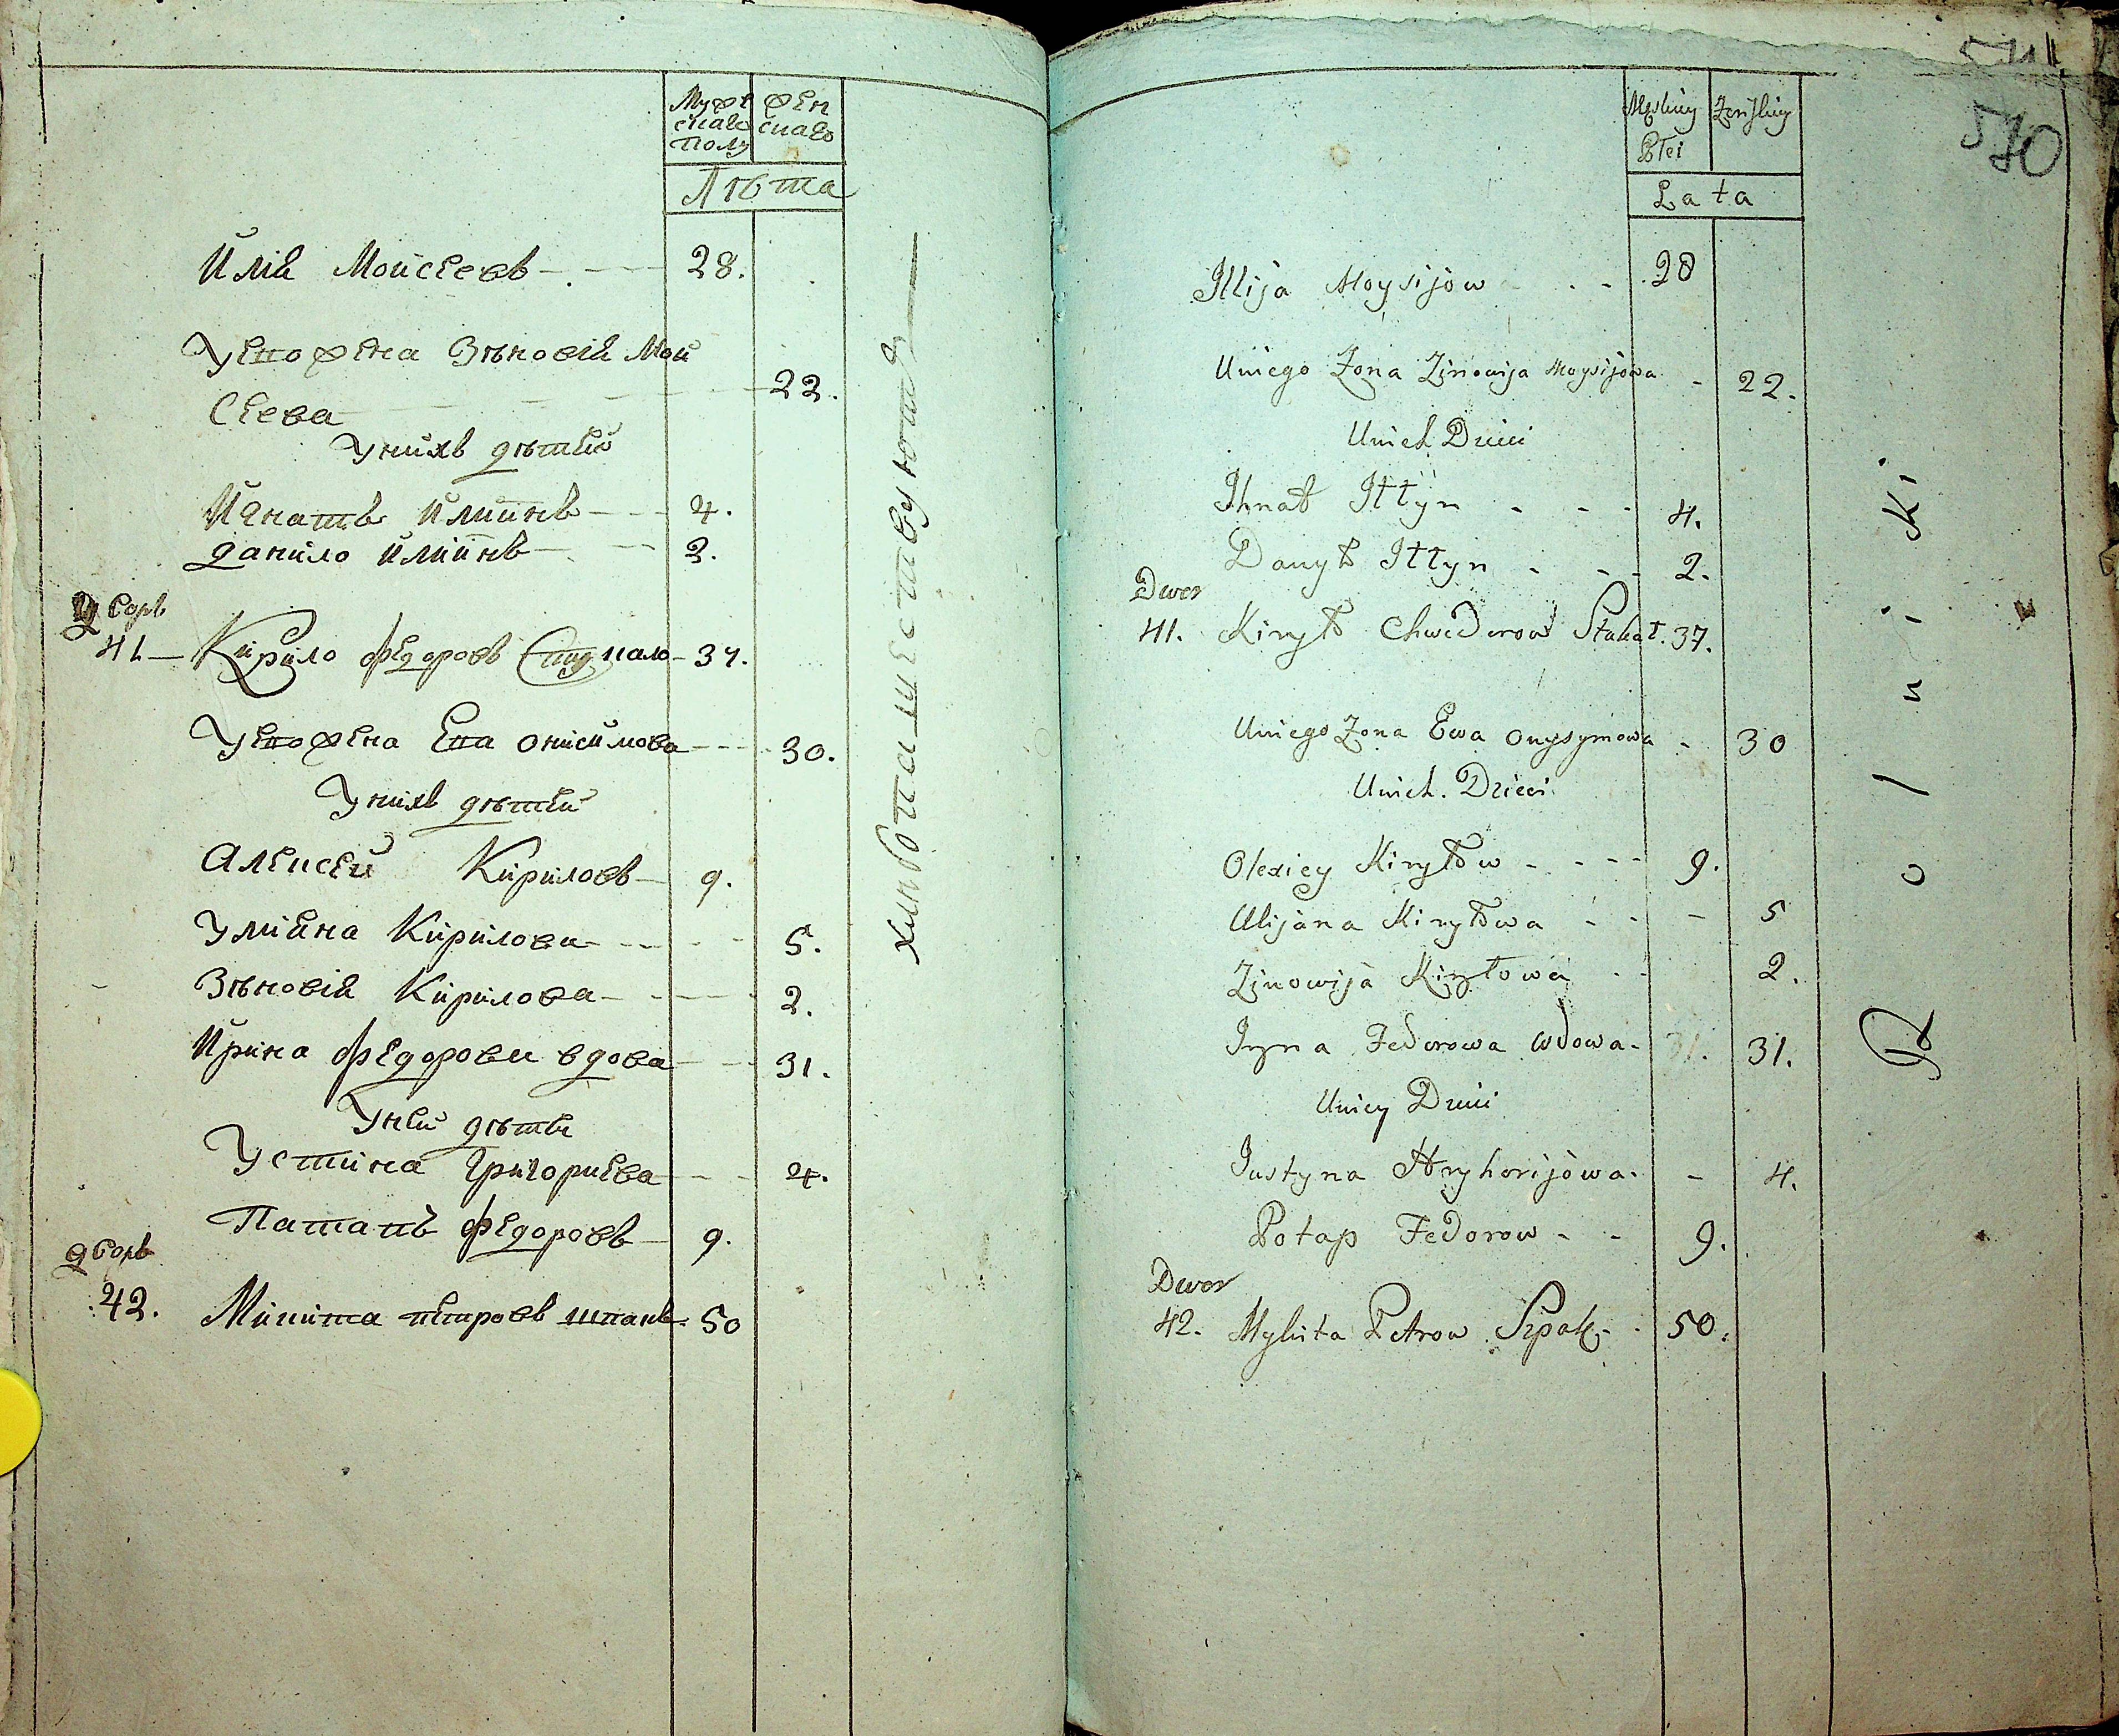 Муже женскаго
скаго
полу
Лѣта
Илія Моисеевъ - - 28.
Уего жена Зѣновія Мои
сеева - - - 22.
Унихъ дѣтей
Игнатъ Илиинъ - - 4.
Данило Илиинъ - - 2.
Дворъ
41 - Кирило Федоровъ Стукало - 37.
Уего жена Ева Онисимова - - 30.
Унихъ дѣтей
Алексей Кириловъ - 9.
Улияна Кирилова - - - 5.
Зѣновія Кирилова - - - 2.
Ирина Федорова вдова - - 31.
Уней дѣтей
Устина Григориева - - 4.
Патапъ Федоровъ - 9.
дворъ
42. Микита Петровъ шпакъ - 50
хлѣбопашествуютъ
511
570
Męskiey Żeńskiey
Płci
Lata
Illija Moysijow - - 28
Uniego Zona Zinowija Moysijowa - 22.
Unich Dzieci
Ihnat Illyn - - - 4.
Danyło Illyn - - - 2.
Dwor
41. Kiryło Chwedorow Stukał. 37.
Uniego Zona Ewa Onysymowa - 30
Unich. Dzieci
Olexiey Kiryłow - - - - 9.
Ulijana Kiryłowa - - - 5
Zinowija Kiryłowa - - 2.
Iryna Fedorowa wdowa - 31. 31.
Uniey Dzieci
Justyna Hryhorijowa - - 4.
Potap Fedorow - - 9.
Dwor
42. Mykita Petrow Szpak - - 50.
Rolniki